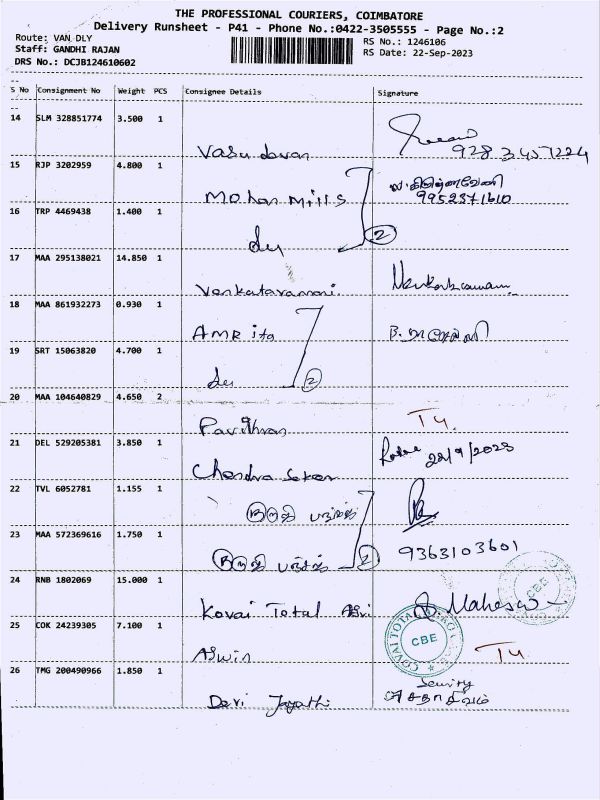 THE PROFESSIONAL COURIERS, COIMBATORE
Delivery Runsheet - P41 - Phone No.:0422-3505555 - Page No.:2
Route: VAN DLY
Staff: GANDHI RAJAN
DRS No.: DCJB124610602
RS No.: 1246106
RS Date: 22-Sep-2023
S No Consignment No Weight PCS Consignee Details Signature
14 SLM 328851774 3.500 1
Vasudevan 9283457224
15 RJP 3202959 4.800 1
Mohan Mills
9952371610
16 TRP 4469438 1.400 1
du 2
17 MAA 295138021 14.850 1
Venkataramani
18 MAA 861932273 0.930 1
AMRita
19 SRT 15063820 4.700 1
du 2
20 MAA 104640829 4.650 2
Pavithran
21 DEL 529205381 3.850 1
22/9/2023
Chandra Sekar
22 TVL 6052781 1.155 1
23 MAA 572369616 1.750 1
2 9363103601
24 RNB 1802069 15.000 1
Kovai Total J. Maheswa
25 COK 24239305 7.100 1
CBE
CBE
Aswin
26 TMG 200490966 1.850 1
Devi Jayathi